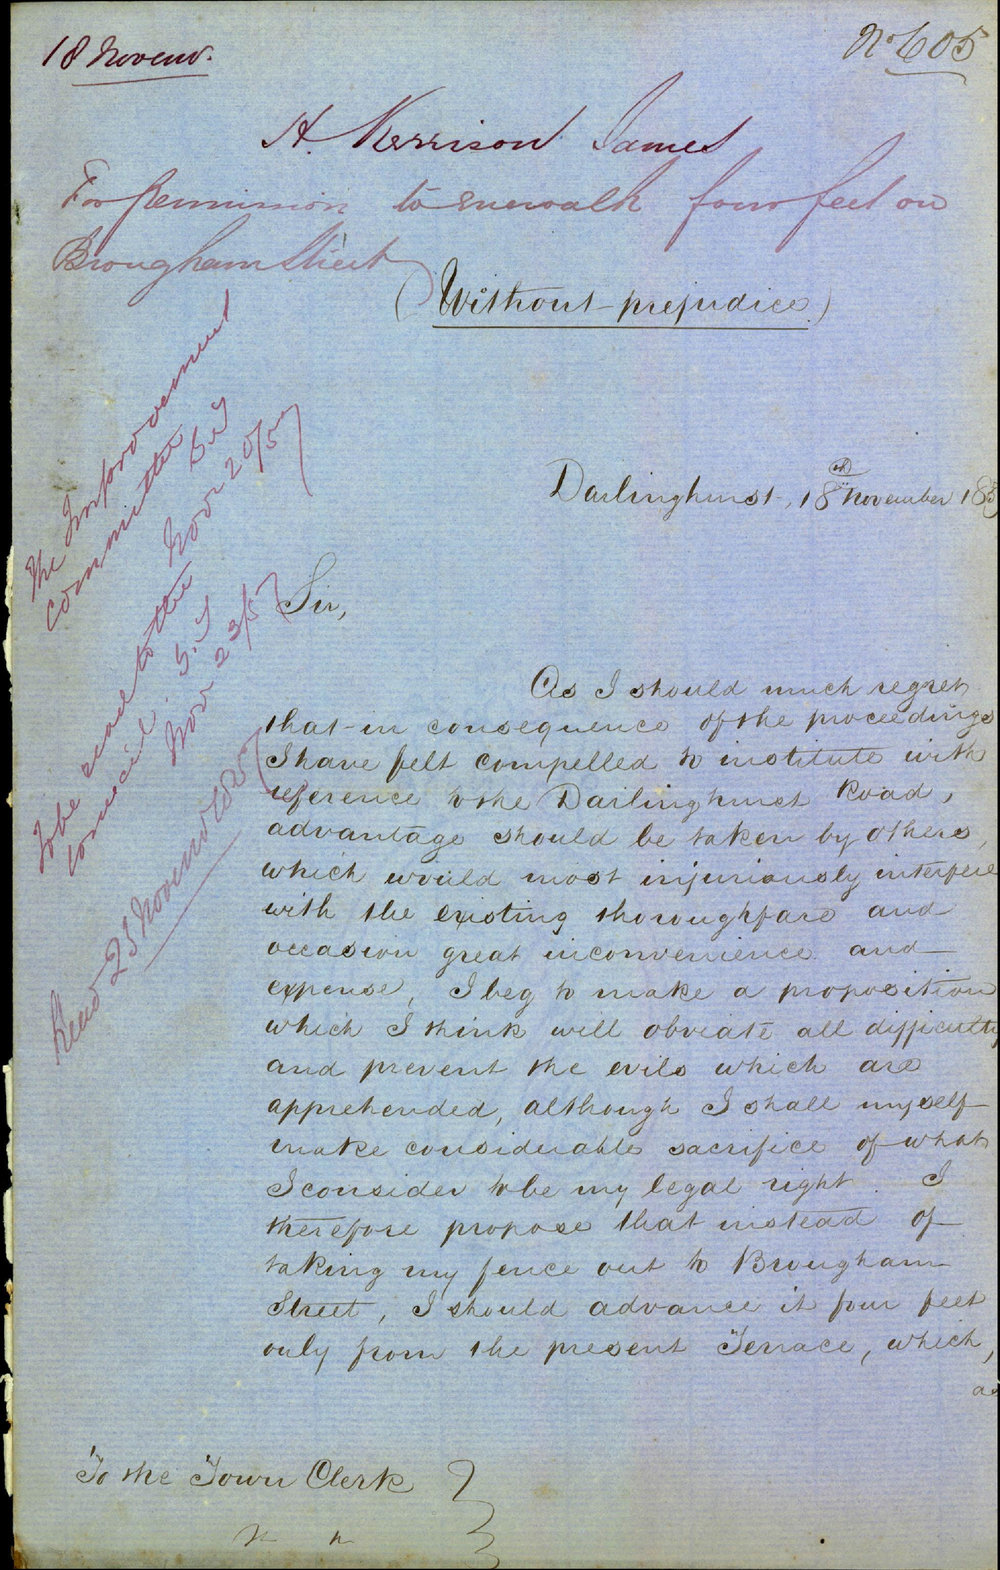 18 Novemr.
No 605
H. Kerrison James
For permission to enwalk four feet on
Brougham Street
(Without prejudice.)
The Improvement
Committee
Novr 20/57
To be read to the
Council.
Novr 23/57
Read 23 Novemr 1857
Darlinghurst, 18th November 185
Sir,
As I should much regret
that in consequence of the proceedings
I have felt compelled to institute with
reference to the Darlinghurst Road,
advantage should be taken by others,
which would most injuriously interfere
with the existing thoroughfare and
occasion great inconvenience and
expense, I beg to make a proposition
which I think will obviate all difficulty
and prevent the evils which are
apprehended, although I shall myself
make considerable sacrifice of what
I consider to be my legal right. I
therefore propose that instead of
taking my fence out to Brougham
Street, I should advance it four feet
only from the present Terrace, which,
as
To the Town Clerk